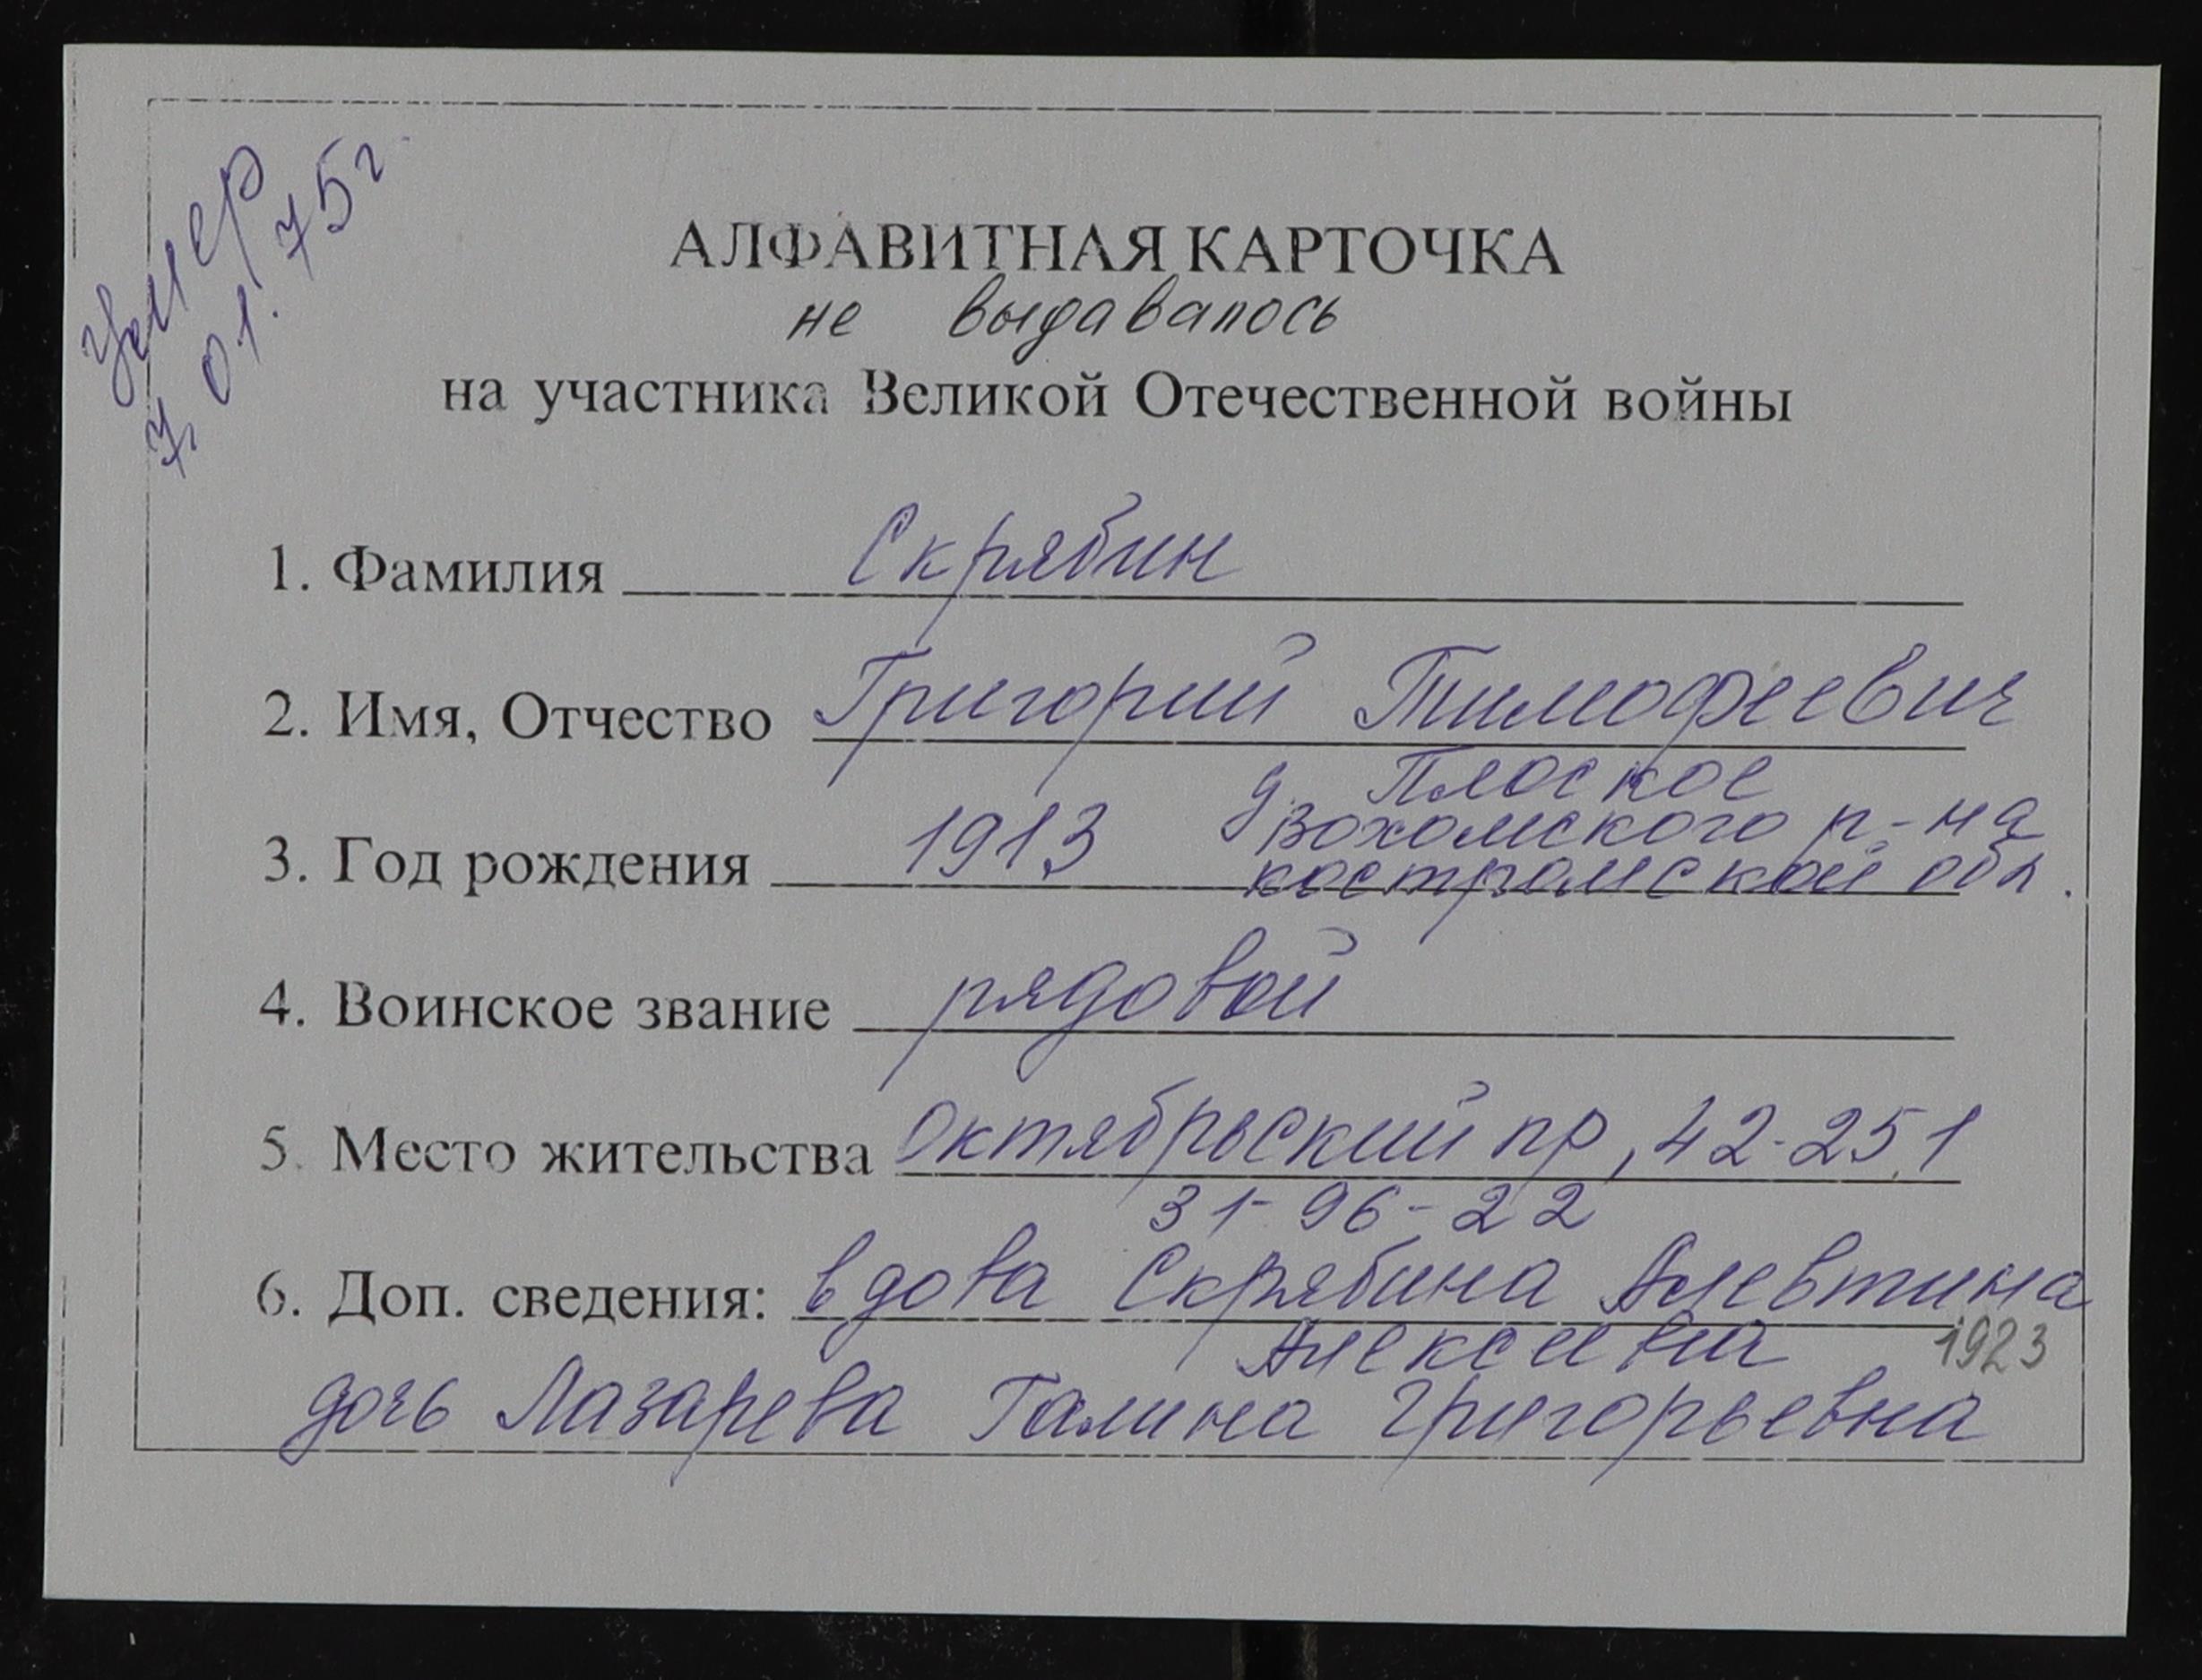 Умер
7. 01. 75 г.
АЛФАВИТНАЯ КАРТОЧКА
не выдавалось
на участника Великой Отечественной войны
1. Фамилия Скрябин
2. Имя, Отчество Григорий Тимофеевич
д. Плоское
Вохомского р-на
3. Год рождения 1913 костромской обл.
4. Воинское звание рядовой
5. Место жительства Октябрьский пр, 42-251
31-96-22
6. Доп. сведения: вдова Скрябина Алевтина
Алексеевна 1923
дочь Лазарева Галина Григорьевна